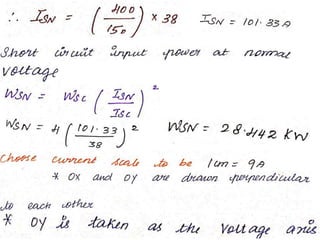 ∴ ISN = (400/150) × 38 ISN = 101.33 A
Short circuit input power at normal
voltage
WSN = WSC (ISN/ISC)²
WSN = 4 (101.33/38)² WSN = 28.442 KW
Choose current scale to be 1cm = 9A
* OX and OY are drawn perpendicular
to each other
* OY is taken as the Voltage axis